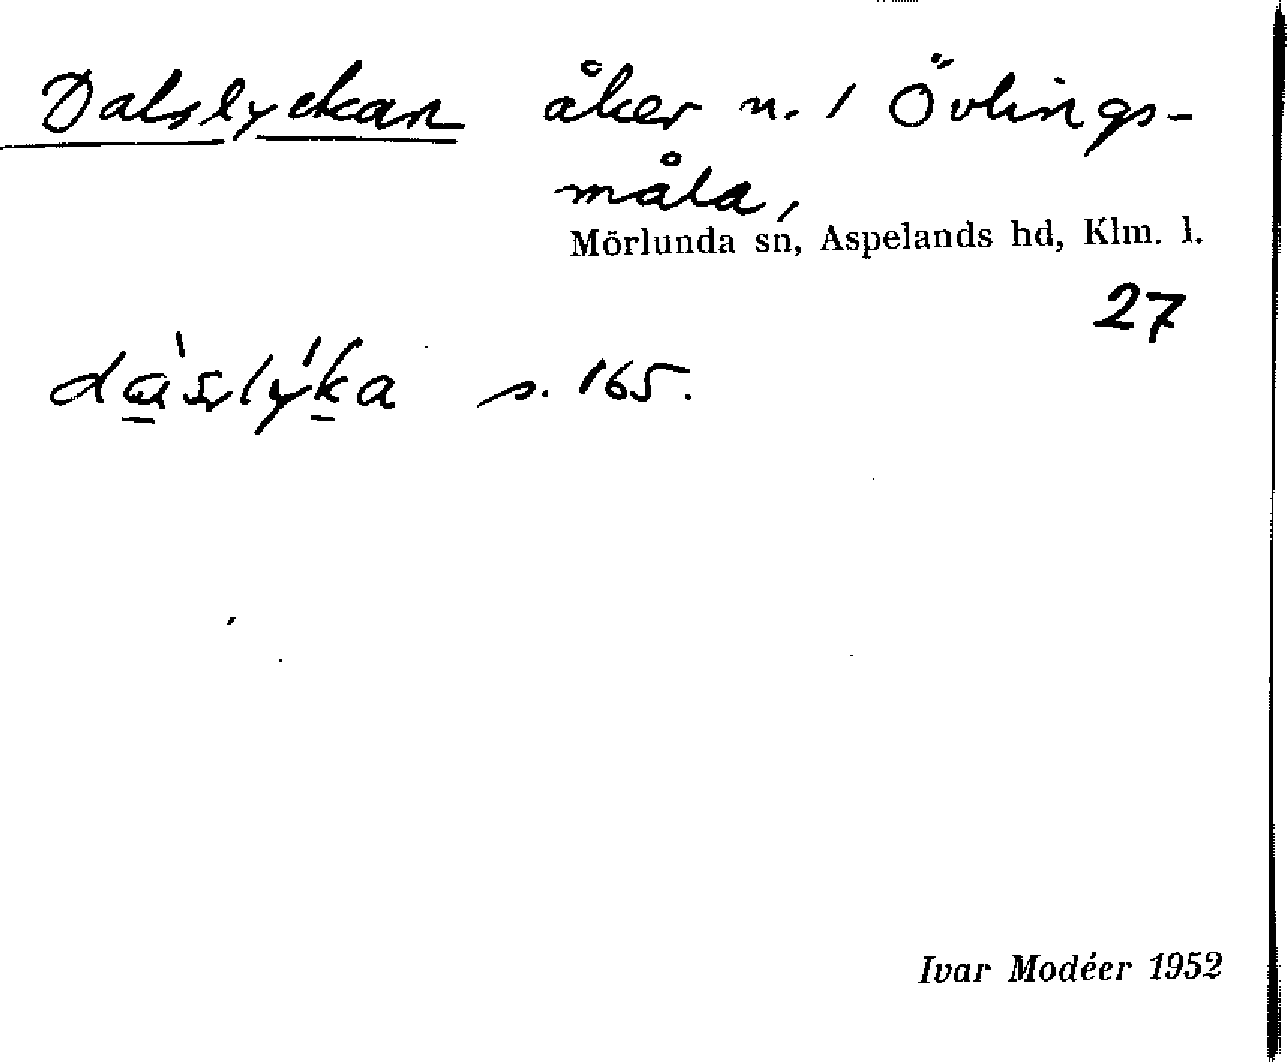 Dalslyckan åker n. 1 Övlings-
måla,
Mörlunda sn, Aspelands hd, Klm. l.
27
s. 165.
Ivar Modéer 1952